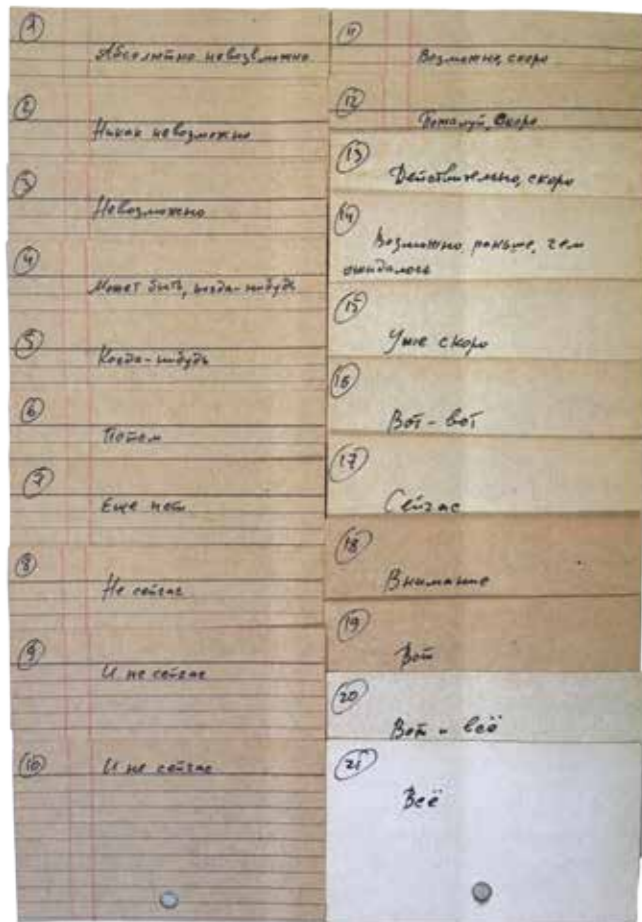 1
Абсолютно невозможно
2
Никак невозможно
3
Невозможно
4
Может быть, когда-нибудь
5
Когда-нибудь
6
Потом
7
Еще нет
8
Не сейчас
9
И не сейчас
10
И не сейчас
11
Возможно, скоро
12
Пожалуй, скоро
13
Действительно, скоро
14
Возможно раньше, чем
ожидалось
15
Уже скоро
16
Вот-вот
17
Сейчас
18
Внимание
19
Вот
20
Вот и всё
21
Всё